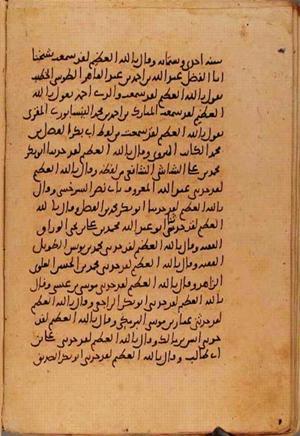 سنه احدى وستمائه وقال بالله العظيم لقد سمعت شيخنا
ابا الفضل عبد الله بن احمد بن عبد القاهر الطوسى الخطيب
يقول بالله العظيم لقد سمعت والدى احمد يقول بالله
العظيم لقد سمعت المبارك بن احمد بن محمد النيسابورى المقرى
يقول بالله العظيم لقد سمعت من لفظ ابى بكر الفضل بن
محمد الكاتب الهروى وقال بالله العظيم لقد حدثنا ابو بكر
محمد بن على الشاشى الشافعى من لفظه وقال بالله العظيم
لقد حدثنى عبد الله المعروف بابى نصر السرخسى وقال
بالله العظيم لقد حدثنا ابو بكر محمد بن الفضل وقال بالله
العظيم لقد حدثنا ابو عبد الله محمد بن على بن يحيى الوراق
الفقيه وقال بالله العظيم لقد حدثنى محمد بن يونس الطويل
الفقيه وقال بالله العظيم لقد حدثنى محمد بن الحسن العلوى
الزاهد وقال بالله العظيم لقد حدثنى موسى بن عيسى وقال
بالله العظيم لقد حدثنى ابو بكر الراجعى وقال بالله العظيم
لقد حدثنى عمار بن موسى البرمكى وقال بالله العظيم لقد
حدثنى انس بن مالك وقال بالله العظيم لقد حدثنى على بن
ابى طالب وقال بالله العظيم لقد حدثنى ابو بكر الصديق